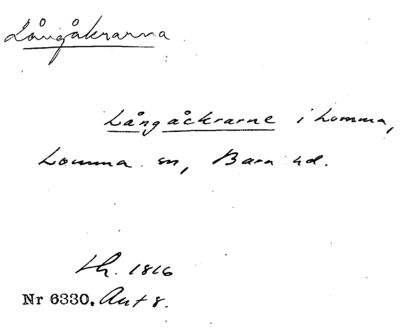 Långåkrarna
Långåckrarne i Lomma,
Lomma sn, Bara hd.
Lh. 1816
Nr 6330. Akt 8.